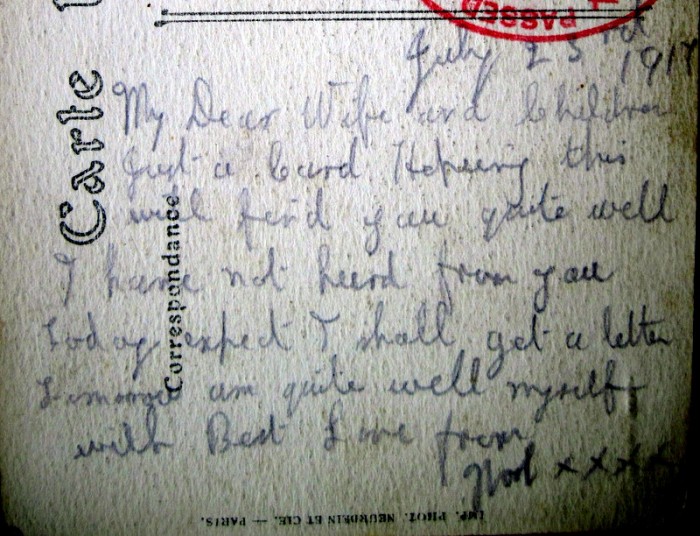 PASSED
July 23rd 1917
My Dear Wife and Children
Just a Card Hopeing this
will find you quite well
I have not heard from you
Today expect I shall get a letter
Tomorrow am quite well myself
with Best Love from
xxxx
Carte
Correspondance
IMP. PHOT. NEURDEIN ET CIE. — PARIS.